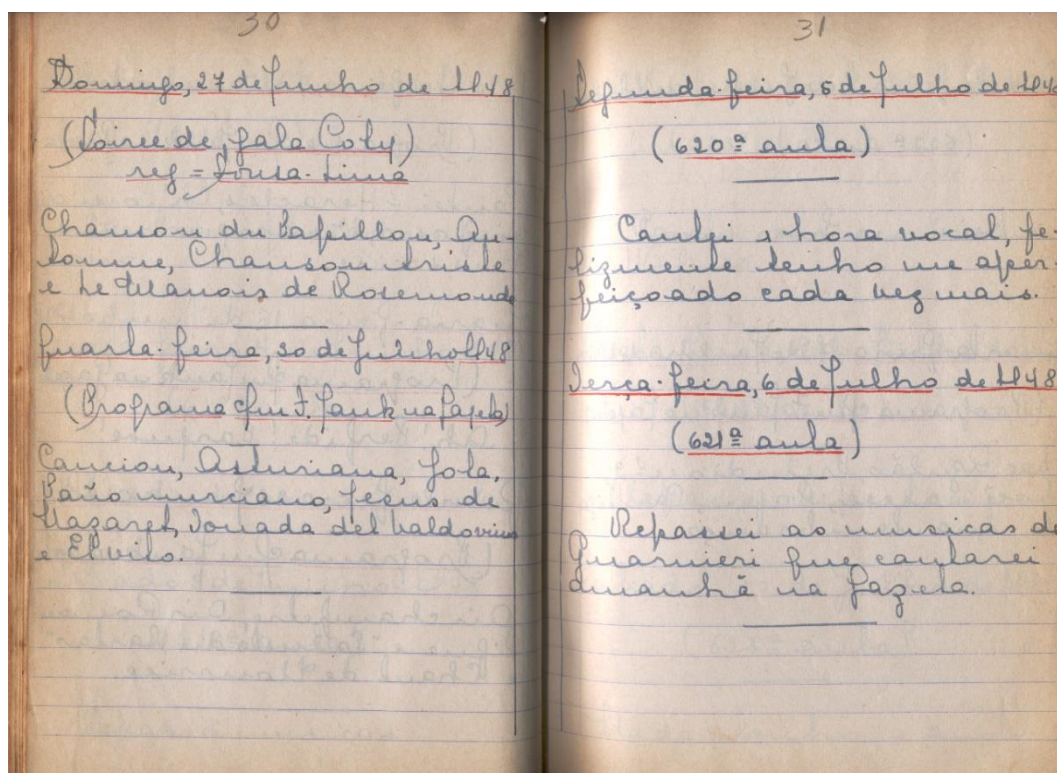 30
Domingo, 27 de Junho de 1948
(Soiree de gala Coty)
reg = Sousa Lima
Chanson du Papillon, Au-
tomne, Chanson triste
e Le Manois de Rosemonde
Quarta-feira, 30 de Junho 1948
(Programa c/ na Gazeta)
Cancion, Asturiana, Jota,
Paño murciano, Jesus de
Nazaret, Tonada del Valdovinos
e El vito.
31
Segunda-feira, 5 de Julho de 194
(620ª aula)
Cantei 1 hora vocal, fe-
lizmente tenho me aper-
feiçoado cada vez mais.
Terça-feira, 6 de Julho de 1948
(621ª aula)
Repassei as musicas d
Guarnieri que cantarei
amanhã na Gazeta.